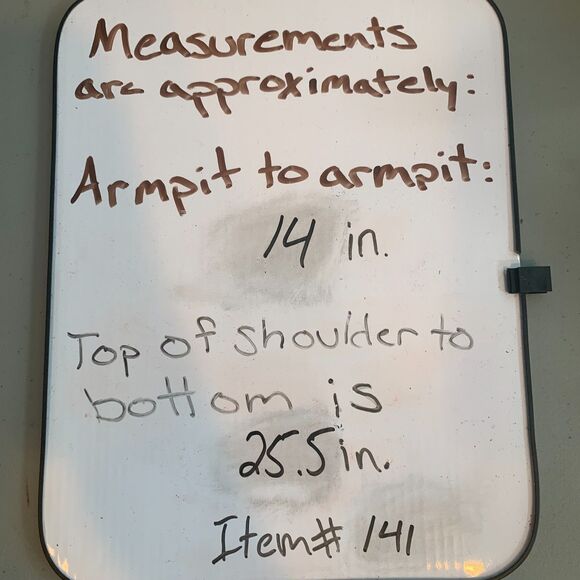 Measurements
are approximately:
Armpit to armpit:
14 in.
Top of shoulder to
bottom is
25.5 in.
Item# 141